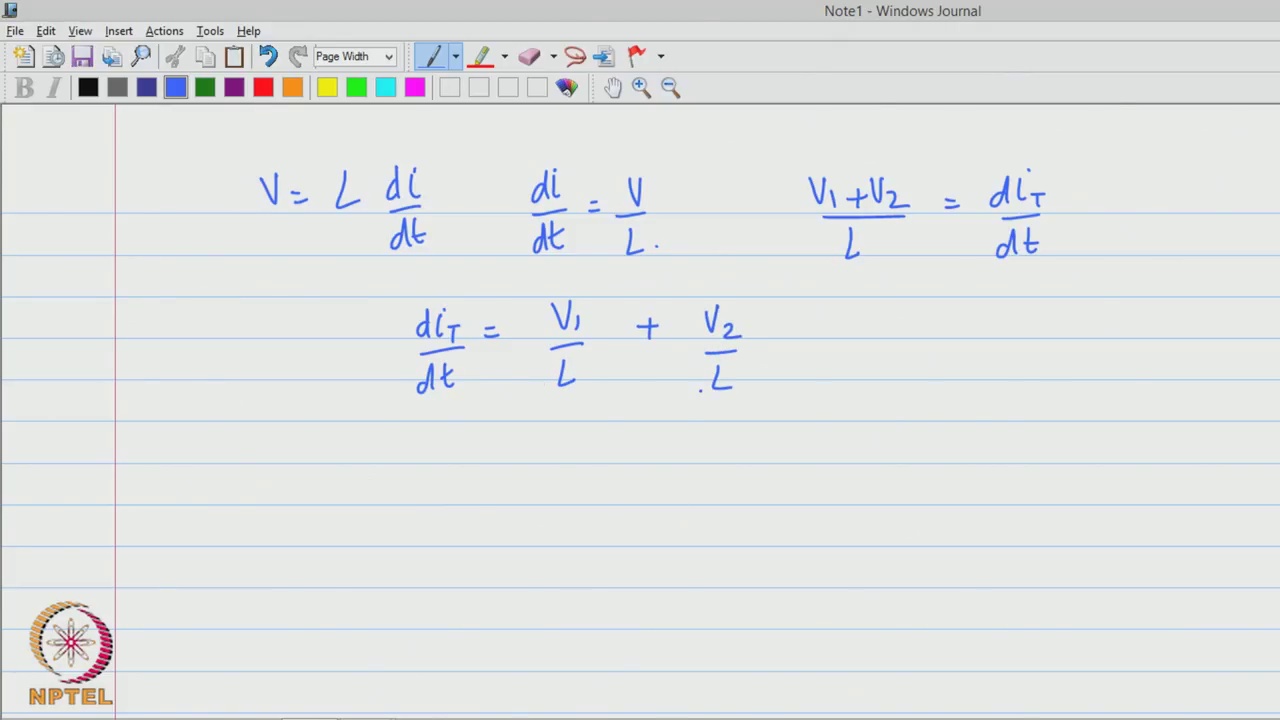 Note1 - Windows Journal
File Edit View Insert Actions Tools Help
Page Width
B I
V = L di/dt di/dt = V/L. V1+V2/L = diT/dt
diT/dt = V1/L + V2/L
NPTEL